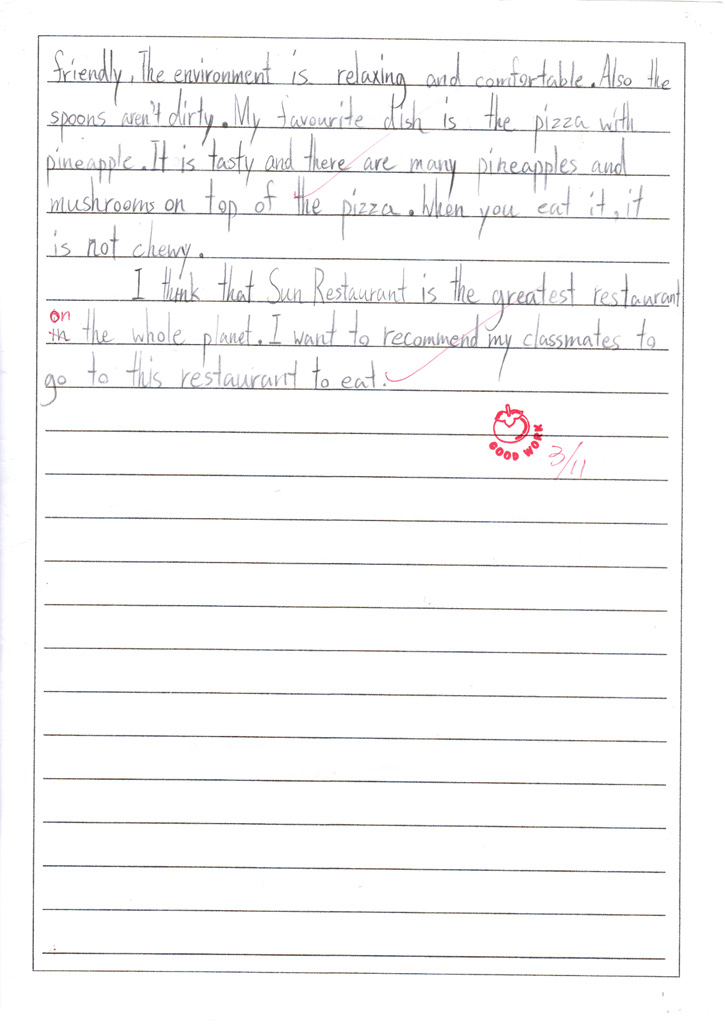 friendly. The environment is relaxing and comfortable. Also the
spoons aren't dirty. My favourite dish is the pizza with
pineapple. It is tasty and there are many pineapples and
mushrooms on top of the pizza. When you eat it, it
is not chewy.
I think that Sun Restaurant is the greatest restaurant
on
in the whole planet. I want to recommend my classmates to
go to this restaurant to eat.
GOOD WORK
3/11